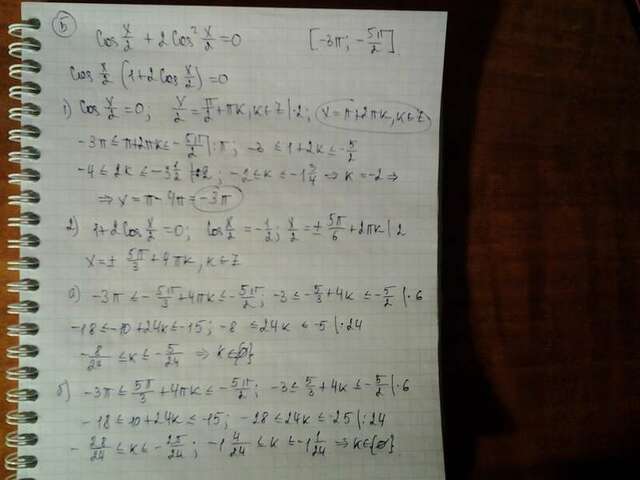 5
cos x/2 + 2cos² x/2 = 0 [-3π; -5π/2]
cos x/2 (1+2cos x/2) = 0
1) cos x/2 = 0; x/2 = π/2 + πk, k∈Z |·2; x = π+2πk, k∈Z
-3π ≤ π+2πk ≤ -5π/2 |:π; -3 ≤ 1+2k ≤ -5/2
-4 ≤ 2k ≤ -3 1/2 |:2; -2 ≤ k ≤ -1 3/4 ⇒ k = -2 ⇒
⇒ x = π - 4π = -3π
2) 1+2cos x/2 = 0; cos x/2 = -1/2; x/2 = ± 5π/6 + 2πk | 2
x = ± 5π/3 + 4πk, k∈Z
а) -3π ≤ -5π/3 + 4πk ≤ -5π/2; -3 ≤ -5/3 + 4k ≤ -5/2 |·6
-18 ≤ -10+24k ≤ -15; -8 ≤ 24k ≤ -5 |:24
-8/24 ≤ k ≤ -5/24 ⇒ k∈{∅}
б) -3π ≤ 5π/3 + 4πk ≤ -5π/2; -3 ≤ 5/3 + 4k ≤ -5/2 |·6
-18 ≤ 10+24k ≤ -15; -28 ≤ 24k ≤ -25 |:24
-28/24 ≤ k ≤ -25/24; -1 4/24 ≤ k ≤ -1 1/24 ⇒ k∈{∅}